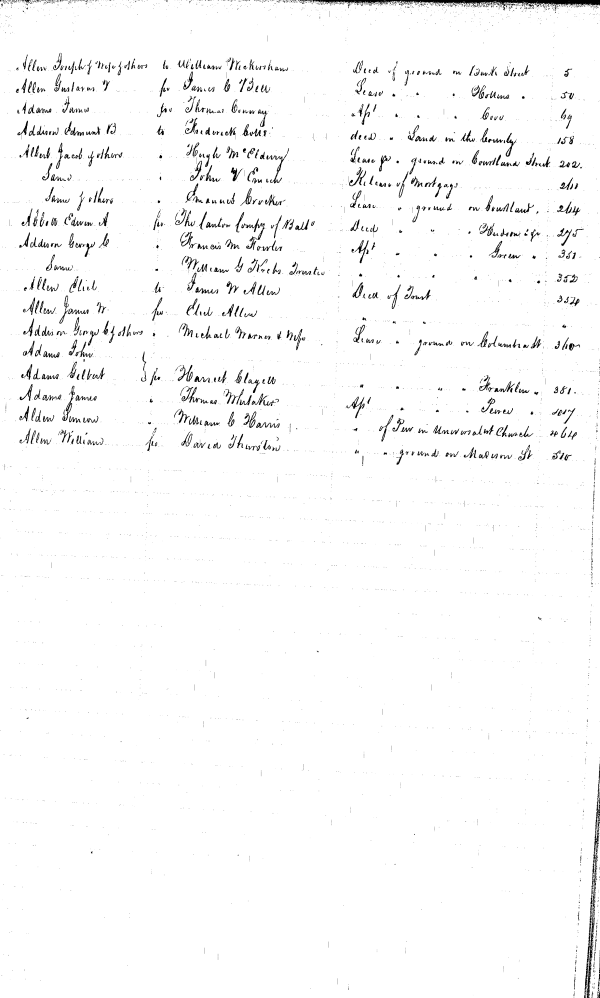 Allen Joseph & Wife & others to William Wickersham Deed of ground on Bank Street 5
Allen Gustavus V fr James C Bell Lease " " " Hollins " 50
Adams James fr Thomas Conway Ast " " " Cove 69
Addison Edmund B to Frederick deed " Land in the County 158
Albert Jacob & others " Hugh McElderry Lease fr " ground on Courtland Street 202.
Same " John V Emich Release of Mortgage 211
Same & others " Emanuel Crocker Lease " ground on Courtland " 264
Abbott Edwin A fr The Canton Compy of Balto Deed " " " Hudson 275
Addison George C " Francis M Fowler Ast " " " Green " 351
Same " William G Krebs Trustee " " " " " 352
Allen to James W Allen Deed of Trust 354
Allen James W fr Allen " " " "
Addison George C & others " Michael Warner & Wife Lease " ground on Columbia St 360
Adams John
Adams Gilbert } fr Harriet Clagett " " " " Franklin " 381.
Adams James " Thomas Whitaker Ast " " " Peirce " 407
Alden Simeon " William C Harris " of Pew in Universalist Church 464
Allen William fr David Thurston " " ground on Madison St 510